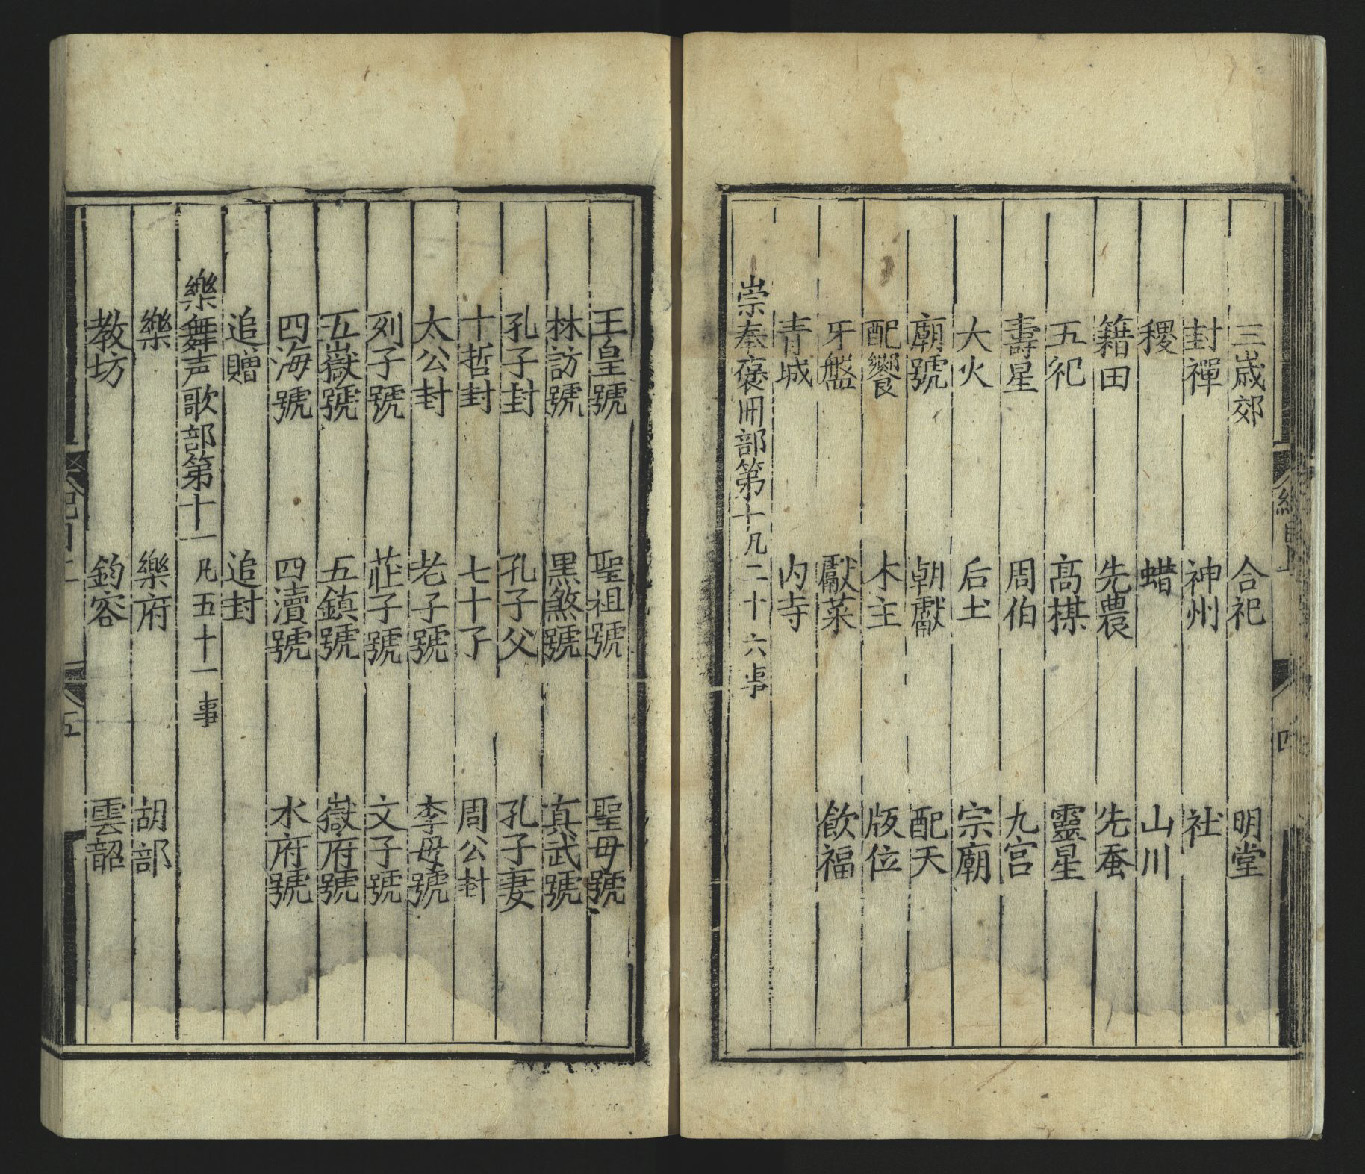 三歳郊 合祀 明堂
封禪 神州 社
稷 蜡 山川
籍田 先農 先蚕
五祀 高禖 靈星
壽星 周伯 九宫
大火 后土 宗廟
廟號 朝獻 配天
配饗 木主 版位
牙盤 獻菜 飲福
青城 内寺
崇奉褒冊部第十凡二十六事
王皇號 聖祖號 聖母號
林訪號 黒煞號 真武號
孔子封 孔子父 孔子妻
十哲封 七十子 周公封
太公封 老子號 李母號
列子號 莊子號 文子號
五嶽號 五鎮號 嶽府號
四海號 四瀆號 水府號
追贈 追封
樂舞声歌部第十一凡五十一事
樂 樂府 胡部
教坊 鈞容 雲韶
五
四